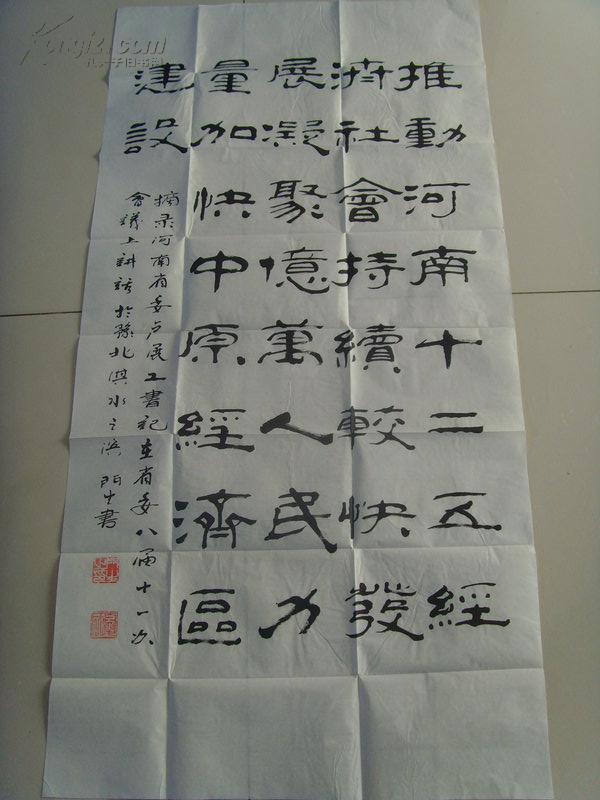 推動河南十二五經
济社會持續較快發
展凝聚億萬人民力
量加快中原經濟區
建設
摘录河南省委卢展工書記在省委八届十一次
會議上講話於豫北淇水之滨 阳生書
Kongfz.com
孔夫子旧书网